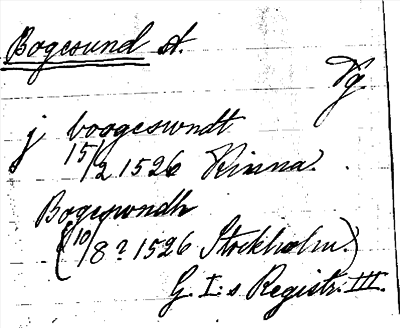 Bogesund st.
Vg
j boogeswndt
15/2 1526 Kinna.
Bogeswndh
(10/8? 1526 Stockholm.)
G. I:s Registr. III.